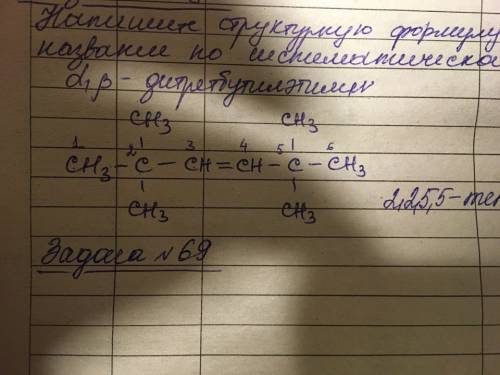 Напишите структурную формулу
название по систематической
α,β - дитретбутилэтилен
CH3 CH3
1 2 3 4 5 6
CH3 - C - CH = CH - C - CH3
CH3 CH3
2,2,5,5-тет
Задача №69